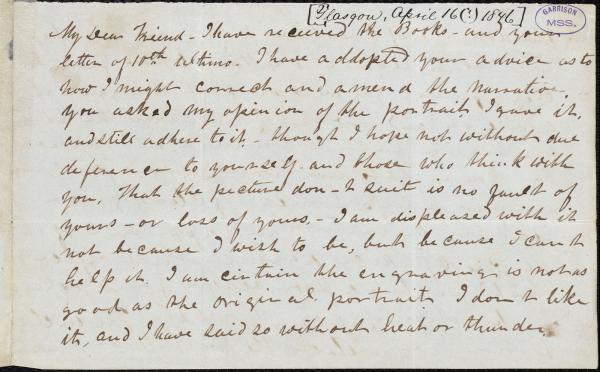 [Glasgow, April 16(?) 1846]
GARRISON
MSS.
My Dear Friend - I have received the Books - and your
letter of 10th ultimo. I have addopted your advice as to
how I might correct and amend the narrative.
you asked my opinion of the portrait I gave it,
and still adhere to it, - though I hope not without due
deference to yourself and those who think with
you, That the picture don-t suit is no fault of
yours - or loss of yours, - I am displeased with it
not because I wish to be, but because I cant
help it. I am certain the engraving is not as
good as the original portrait. I don t like
it, and I have said so without heat or thunder.